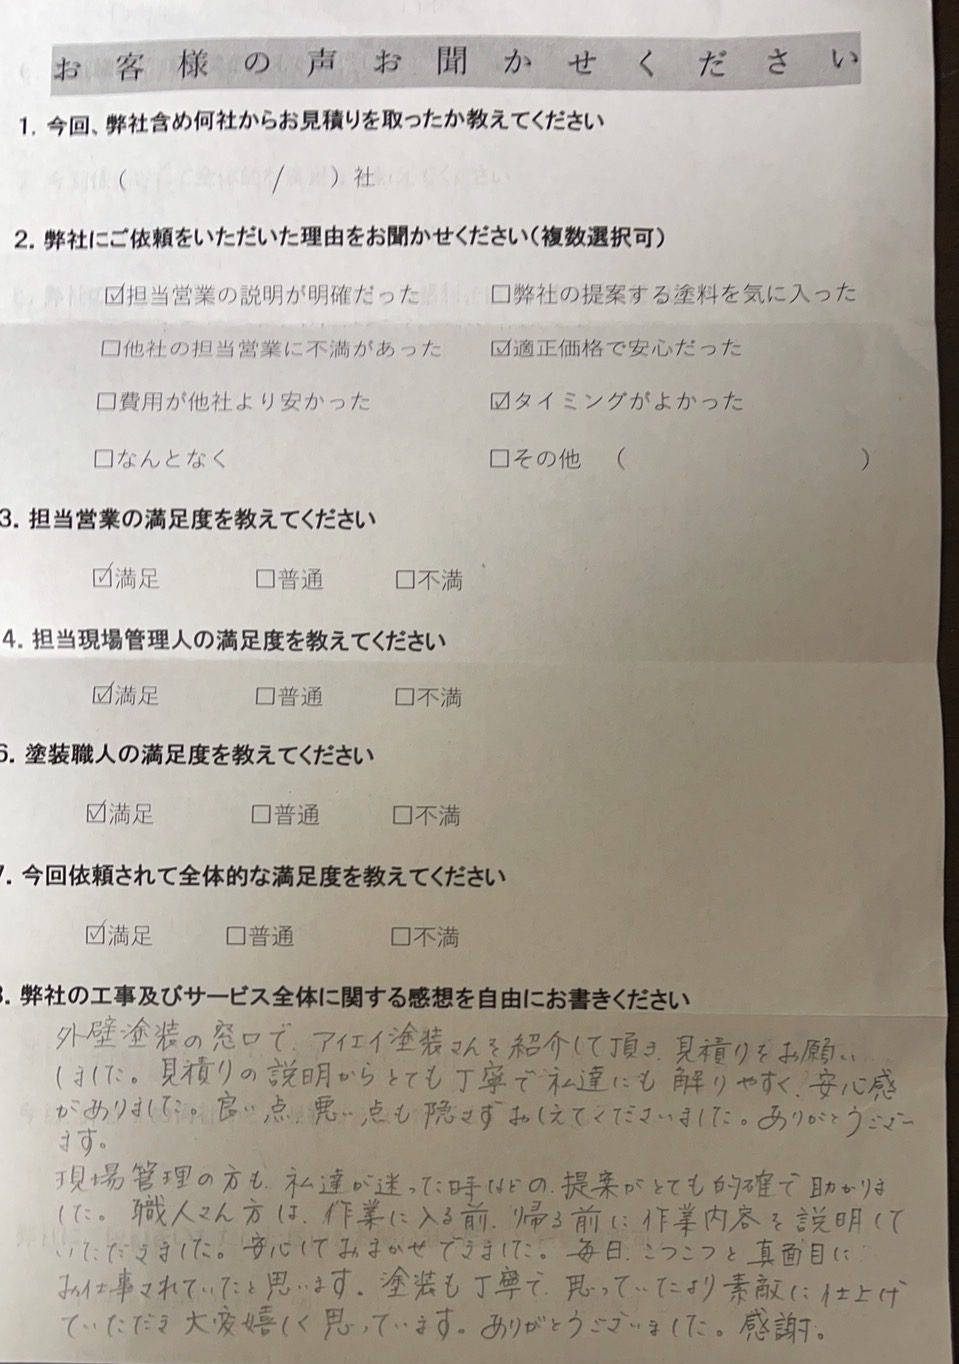 お客様の声お聞かせください
1. 今回、弊社含め何社からお見積りを取ったか教えてください
( / )社
2. 弊社にご依頼をいただいた理由をお聞かせください(複数選択可)
☑担当営業の説明が明確だった □弊社の提案する塗料を気に入った
□他社の担当営業に不満があった ☑適正価格で安心だった
□費用が他社より安かった ☑タイミングがよかった
□なんとなく □その他 ( )
3. 担当営業の満足度を教えてください
☑満足 □普通 □不満
4. 担当現場管理人の満足度を教えてください
☑満足 □普通 □不満
6. 塗装職人の満足度を教えてください
☑満足 □普通 □不満
7. 今回依頼されて全体的な満足度を教えてください
☑満足 □普通 □不満
8. 弊社の工事及びサービス全体に関する感想を自由にお書きください
外壁塗装の窓口で、アイエイ塗装さんを紹介して頂き、見積りをお願い
しました。見積りの説明からとても丁寧で私達にも解りやすく、安心感
がありました。良い点、悪い点も隠さずおしえてくださいました。ありがとうござい
ます。
現場管理の方も、私達が迷った時などの、提案がとても的確で助かりま
した。職人さん方は、作業に入る前、帰る前に作業内容を説明して
いただきました。安心しておまかせできました。毎日、こつこつと真面目に
お仕事されていたと思います。塗装も丁寧で、思っていたより素敵に仕上げ
ていただき大変嬉しく思っています。ありがとうございました。感謝。